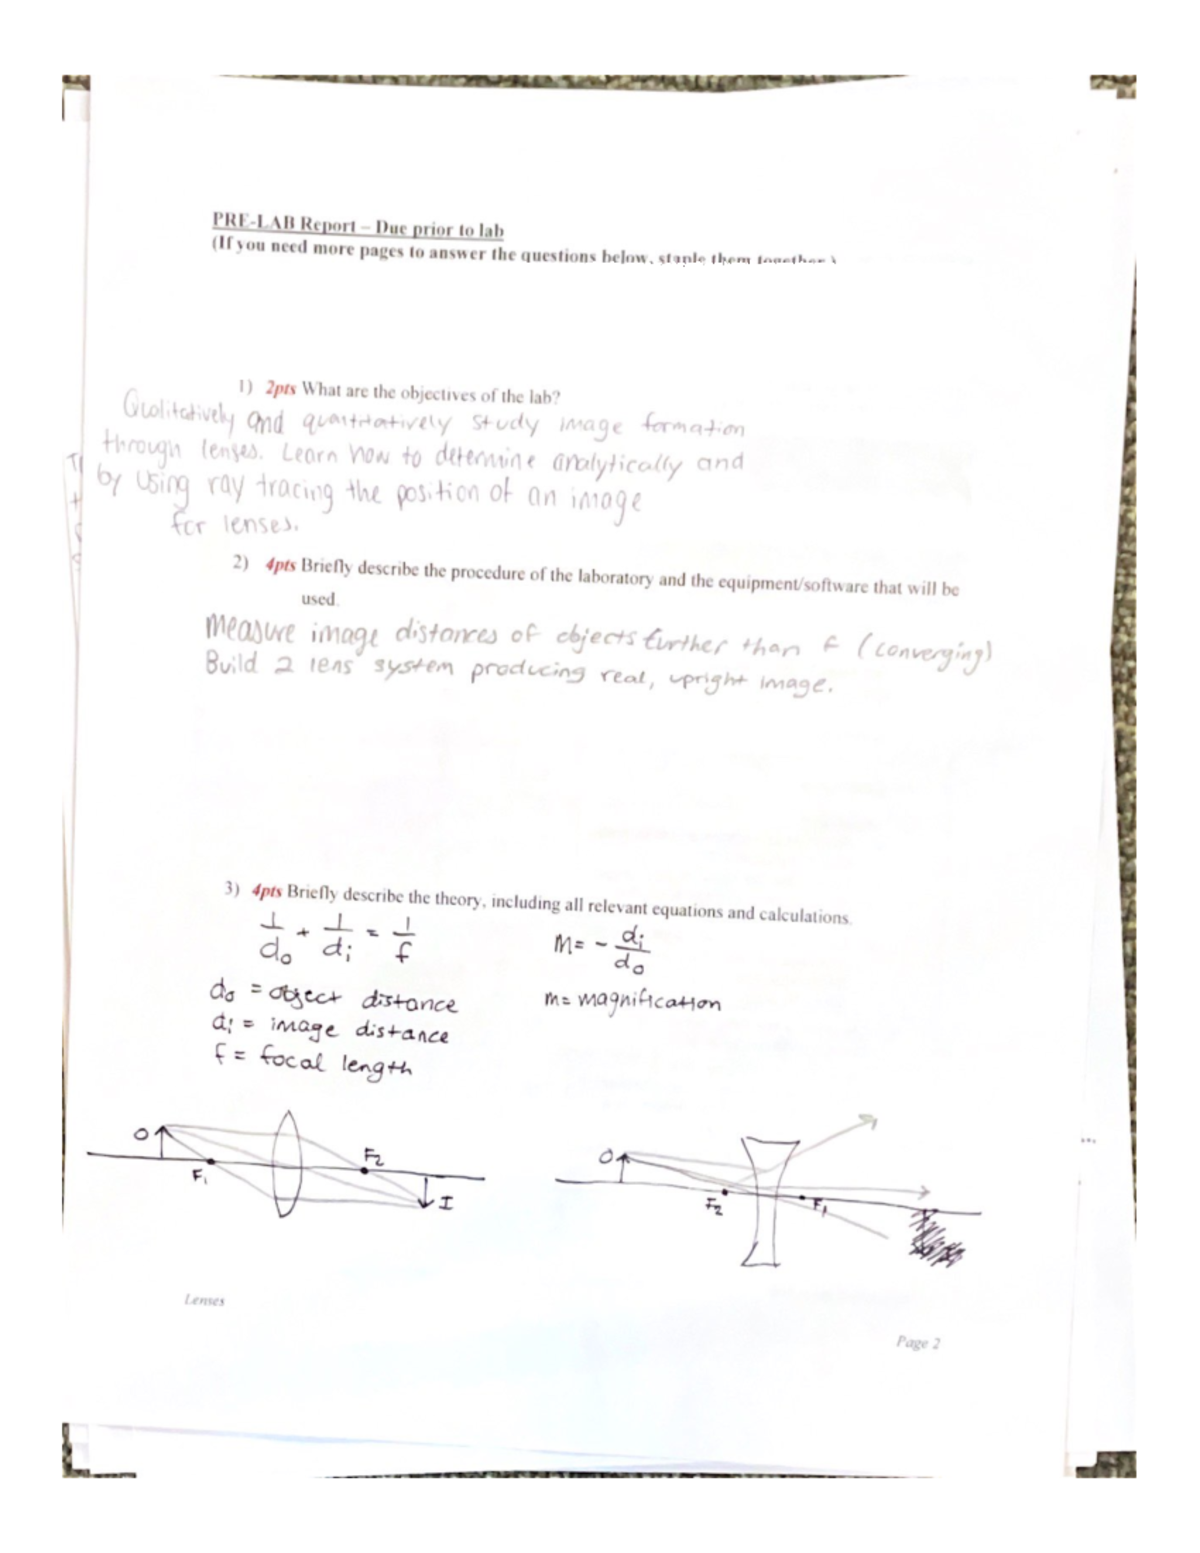 PRE-LAB Report – Due prior to lab
(If you need more pages to answer the questions below, staple them together.)
1) 2pts What are the objectives of the lab?
Qualitatively and quantitatively study image formation
through lenses. Learn how to determine analytically and
by using ray tracing the position of an image
for lenses.
2) 4pts Briefly describe the procedure of the laboratory and the equipment/software that will be
used.
Measure image distances of objects further than f (converging)
Build 2 lens system producing real, upright image.
3) 4pts Briefly describe the theory, including all relevant equations and calculations.
1/do + 1/di = 1/f
M = - di/do
do = object distance
m = magnification
di = image distance
f = focal length
O F1 F2 I
O F2 F1
Lenses
Page 2